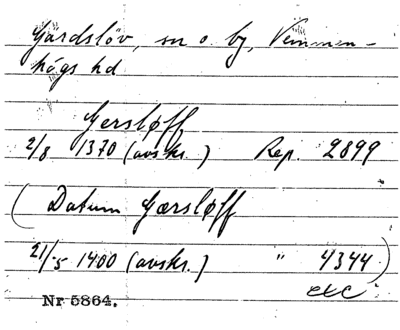 Gärdslöv, sn o. by, Vemmen-
högs hd
Gersløff
2/8 1370 (avskr.) Rep. 2899
(Datum Gærsløff
21/5 1400 (avskr.) " 4344)
etc
Nr 5864.